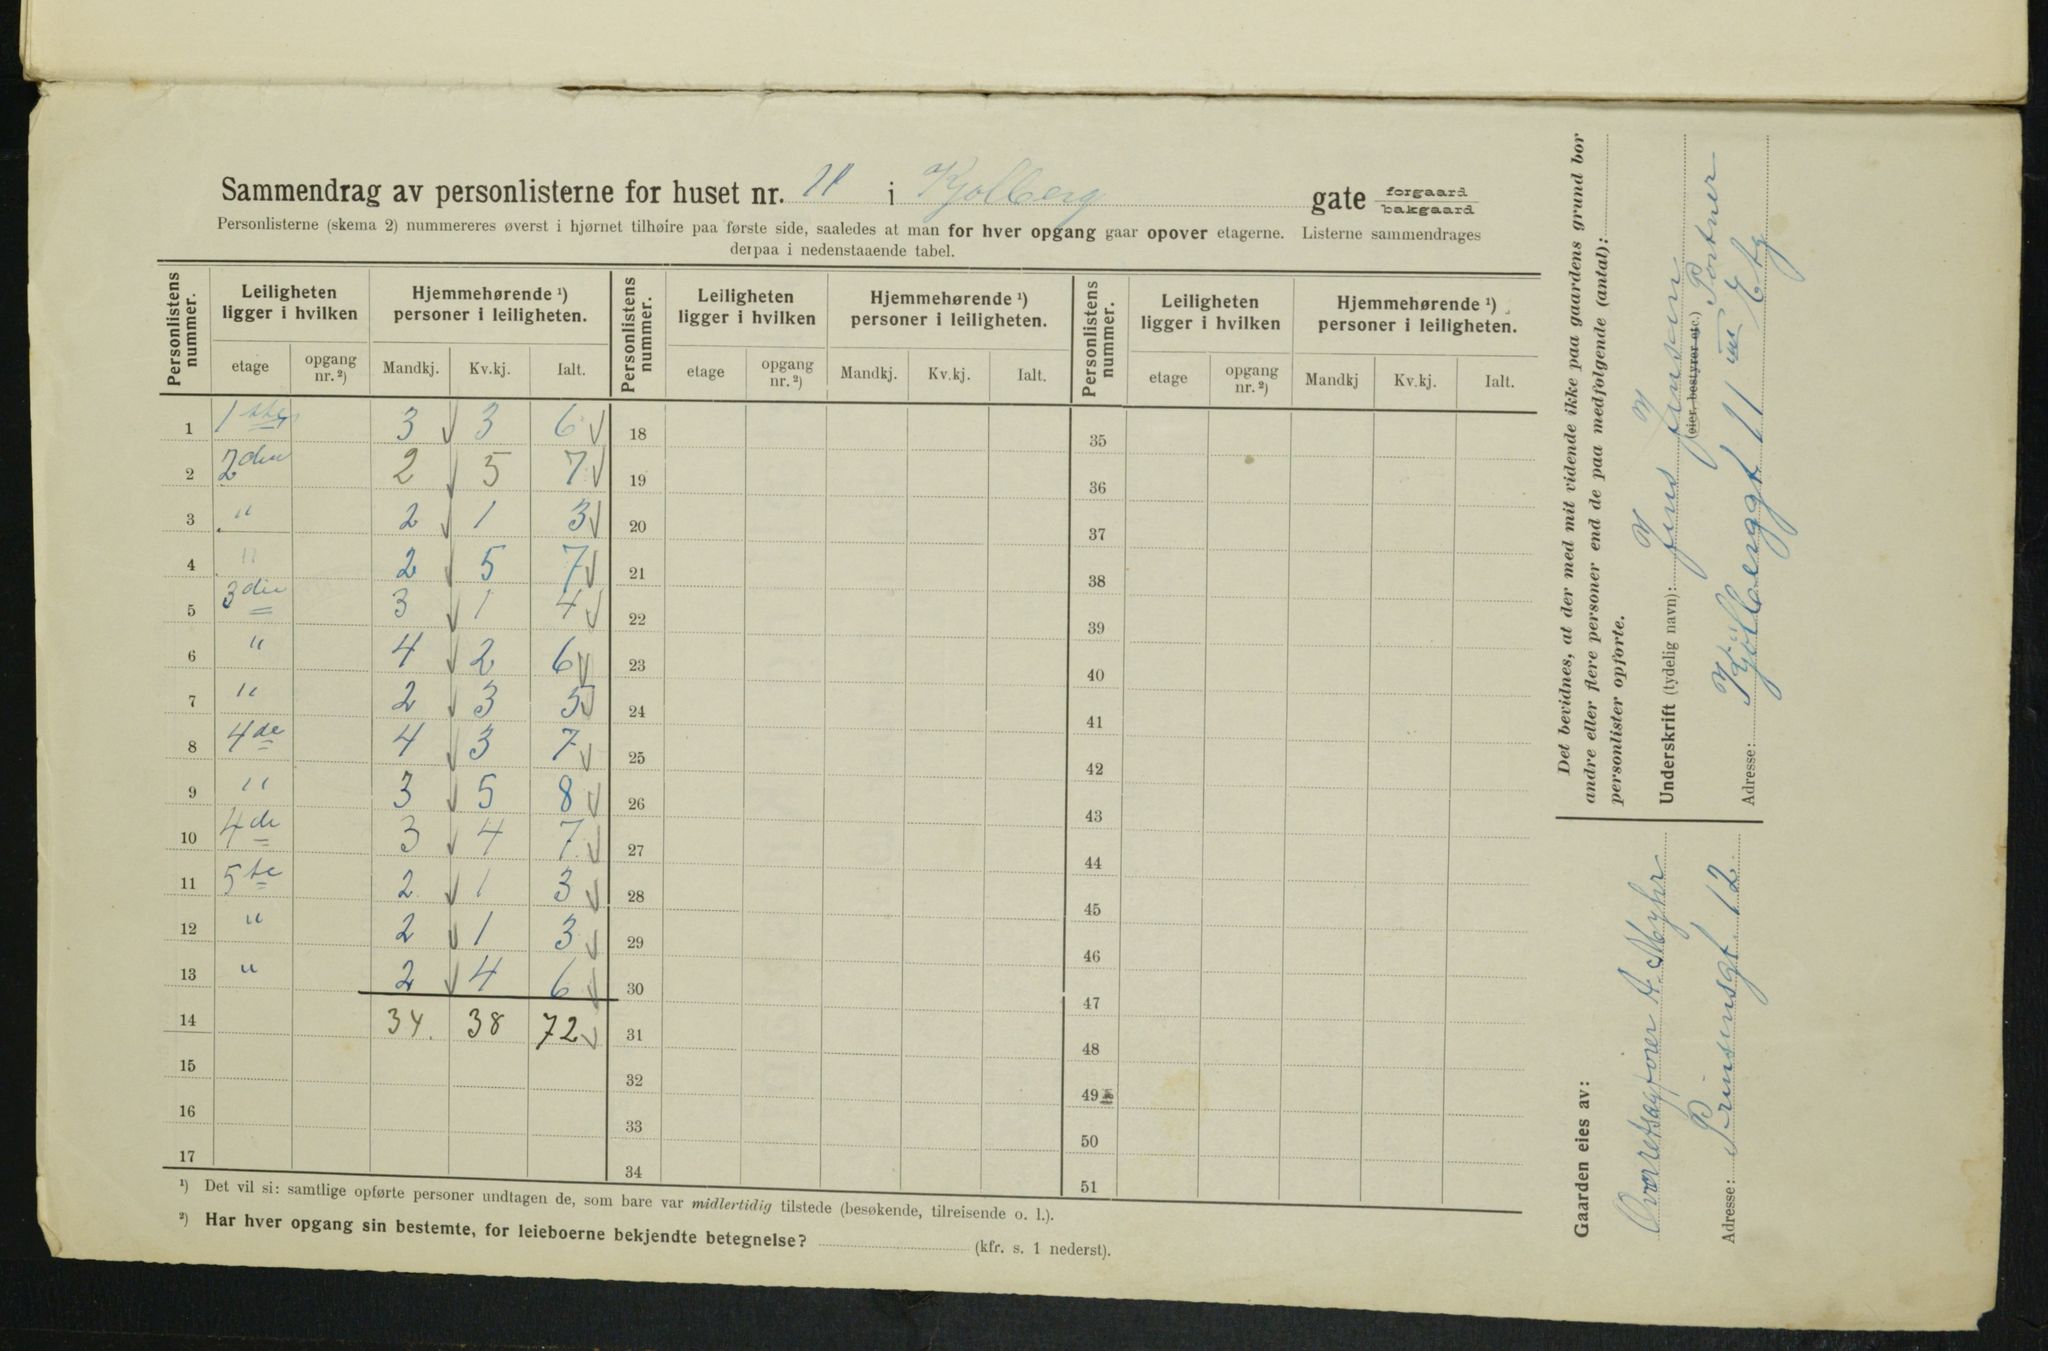 Sammendrag av personlisterne for huset nr. 11 i Kjølberg gate forgaard bakgaard
Personlisterne (skema 2) nummereres øverst i hjørnet tilhøire paa første side, saaledes at man for hver opgang gaar opover etagerne. Listerne sammendrages
derpaa i nedenstaaende tabel.
Personlistens nummer. Leiligheten ligger i hvilken Hjemmehørende ¹) personer i leiligheten. Personlistens nummer. Leiligheten ligger i hvilken Hjemmehørende ¹) personer i leiligheten. Personlistens nummer. Leiligheten ligger i hvilken Hjemmehørende ¹) personer i leiligheten.
etage opgang nr. ²) Mandkj. Kv.kj. Ialt. etage opgang nr. ²) Mandkj. Kv.kj. Ialt. etage opgang nr. ²) Mandkj Kv.kj. Ialt.
1 1ste 3 3 6 18 35
2 2den 2 5 7 19 36
3 " 2 1 3 20 37
4 " 2 5 7 21 38
5 3die 3 1 4 22 39
6 " 4 2 6 23 40
7 " 2 3 5 24 41
8 4de 4 3 7 25 42
9 " 3 5 8 26 43
10 4de 3 4 7 27 44
11 5te 2 1 3 28 45
12 " 2 1 3 29 46
13 " 2 4 6 30 47
14 34. 38 72 31 48
15 32 49
16 33 50
17 34 51
¹) Det vil si: samtlige opførte personer undtagen de, som bare var midlertidig tilstede (besøkende, tilreisende o. l.).
²) Har hver opgang sin bestemte, for leieboerne bekjendte betegnelse? (kfr. s. 1 nederst).
Det bevidnes, at der med mit vidende ikke paa gaardens grund bor
andre eller flere personer end de paa medfølgende (antal):
personlister opførte.
Underskrift (tydelig navn): Jens Jensen
(eier, bestyrer etc.) Portner
Adresse: Kjølberggt 11 III Etg
Gaarden eies av:
Overretsagfører A. Myhr
Adresse: Prinsensgt. 12.